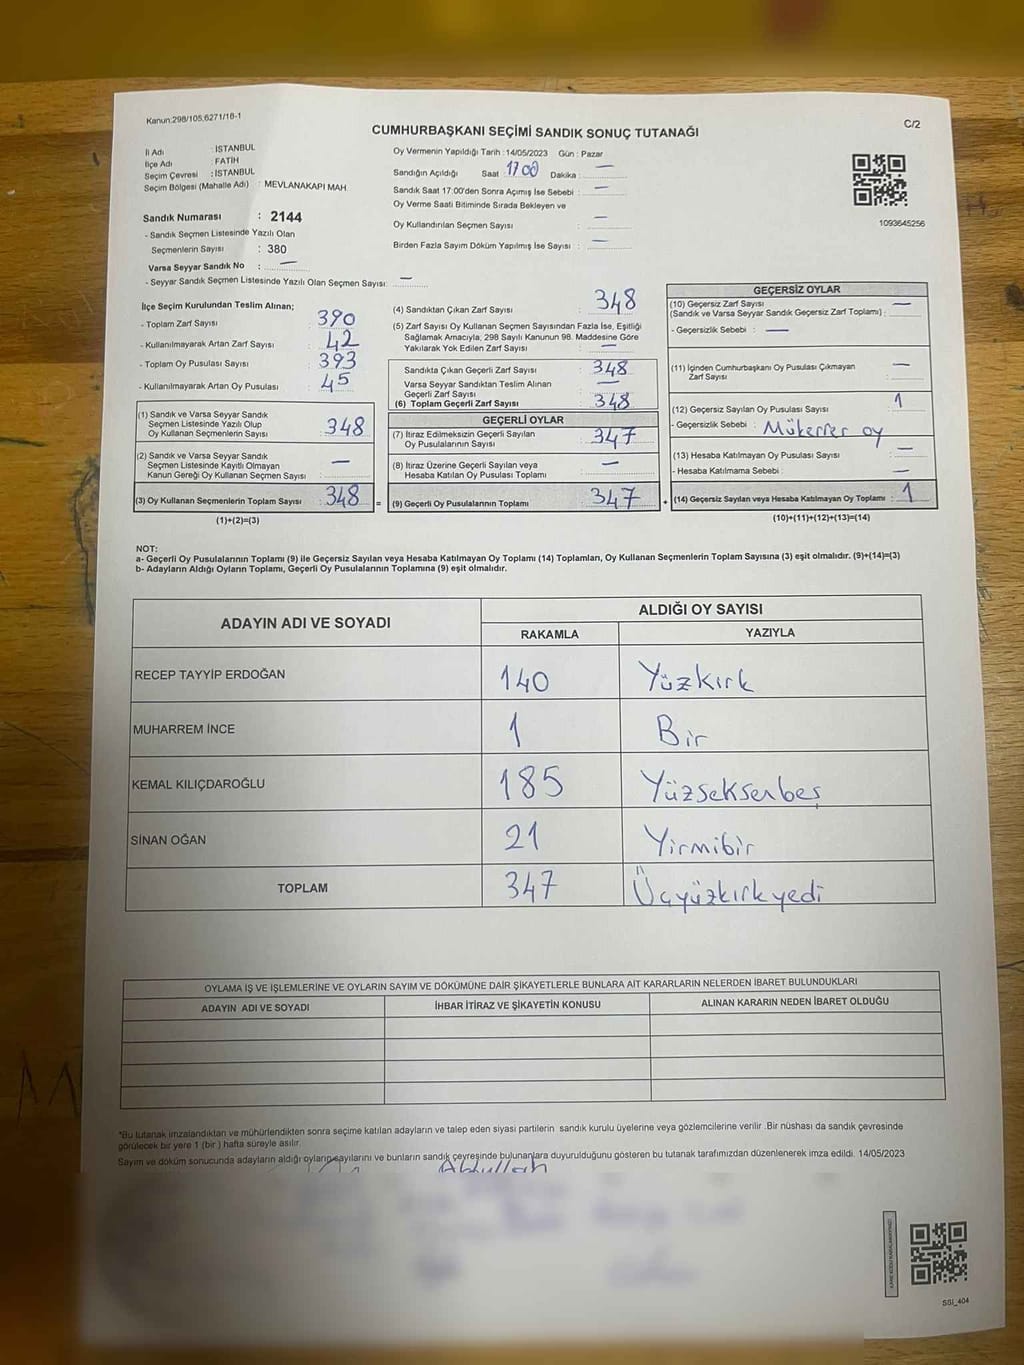 Kanun:298/105,6271/18-1
CUMHURBAŞKANI SEÇİMİ SANDIK SONUÇ TUTANAĞI
C/2
İl Adı : İSTANBUL
İlçe Adı : FATİH
Seçim Çevresi : İSTANBUL
Seçim Bölgesi (Mahalle Adı) : MEVLANAKAPI MAH.
Sandık Numarası : 2144
- Sandık Seçmen Listesinde Yazılı Olan
Seçmenlerin Sayısı : 380
Varsa Seyyar Sandık No : —
- Seyyar Sandık Seçmen Listesinde Yazılı Olan Seçmen Sayısı: —
Oy Vermenin Yapıldığı Tarih : 14/05/2023 Gün : Pazar
Sandığın Açıldığı Saat 17 00 Dakika : —
Sandık Saat 17:00'den Sonra Açımış İse Sebebi : —
Oy Verme Saati Bitiminde Sırada Bekleyen ve
Oy Kullandırılan Seçmen Sayısı : —
Birden Fazla Sayım Döküm Yapılmış İse Sayısı : —
1093645256
İlçe Seçim Kurulundan Teslim Alınan;
- Toplam Zarf Sayısı : 390
- Kullanılmayarak Artan Zarf Sayısı : 42
- Toplam Oy Pusulası Sayısı : 393
- Kullanılmayarak Artan Oy Pusulası : 45
(1) Sandık ve Varsa Seyyar Sandık
Seçmen Listesinde Yazılı Olup
Oy Kullanan Seçmenlerin Sayısı : 348
(2) Sandık ve Varsa Seyyar Sandık
Seçmen Listesinde Kayıtlı Olmayan
Kanun Gereği Oy Kullanan Seçmen Sayısı : —
(3) Oy Kullanan Seçmenlerin Toplam Sayısı : 348 =
(1)+(2)=(3)
(4) Sandıktan Çıkan Zarf Sayısı : 348
(5) Zarf Sayısı Oy Kullanan Seçmen Sayısından Fazla İse, Eşitliği
Sağlamak Amacıyla, 298 Sayılı Kanunun 98. Maddesine Göre
Yakılarak Yok Edilen Zarf Sayısı : —
Sandıkta Çıkan Geçerli Zarf Sayısı : 348
Varsa Seyyar Sandıktan Teslim Alınan
Geçerli Zarf Sayısı : —
(6) Toplam Geçerli Zarf Sayısı : 348
GEÇERLİ OYLAR
(7) İtiraz Edilmeksizin Geçerli Sayılan
Oy Pusulalarının Sayısı : 347
(8) İtiraz Üzerine Geçerli Sayılan veya
Hesaba Katılan Oy Pusulası Toplamı : —
(9) Geçerli Oy Pusulalarının Toplamı : 347 +
GEÇERSİZ OYLAR
(10) Geçersiz Zarf Sayısı —
(Sandık ve Varsa Seyyar Sandık Geçersiz Zarf Toplamı) :
- Geçersizlik Sebebi : —
(11) İçinden Cumhurbaşkanı Oy Pusulası Çıkmayan
Zarf Sayısı : —
(12) Geçersiz Sayılan Oy Pusulası Sayısı : 1
- Geçersizlik Sebebi : Mükerrer oy
(13) Hesaba Katılmayan Oy Pusulası Sayısı : —
- Hesaba Katılmama Sebebi : —
(14) Geçersiz Sayılan veya Hesaba Katılmayan Oy Toplamı : 1
(10)+(11)+(12)+(13)=(14)
NOT:
a- Geçerli Oy Pusulalarının Toplamı (9) ile Geçersiz Sayılan veya Hesaba Katılmayan Oy Toplamı (14) Toplamları, Oy Kullanan Seçmenlerin Toplam Sayısına (3) eşit olmalıdır. (9)+(14)=(3)
b- Adayların Aldığı Oyların Toplamı, Geçerli Oy Pusulalarının Toplamına (9) eşit olmalıdır.
ADAYIN ADI VE SOYADI
ALDIĞI OY SAYISI
RAKAMLA YAZIYLA
RECEP TAYYİP ERDOĞAN 140 Yüzkırk
MUHARREM İNCE 1 Bir
KEMAL KILIÇDAROĞLU 185 Yüzseksenbeş
SİNAN OĞAN 21 Yirmibir
TOPLAM 347 Üçyüzkırkyedi
OYLAMA İŞ VE İŞLEMLERİNE VE OYLARIN SAYIM VE DÖKÜMÜNE DAİR ŞİKAYETLERLE BUNLARA AİT KARARLARIN NELERDEN İBARET BULUNDUKLARI
ADAYIN ADI VE SOYADI İHBAR İTİRAZ VE ŞİKAYETİN KONUSU ALINAN KARARIN NEDEN İBARET OLDUĞU
*Bu tutanak imzalandıktan ve mühürlendikten sonra seçime katılan adayların ve talep eden siyasi partilerin sandık kurulu üyelerine veya gözlemcilerine verilir .Bir nüshası da sandık çevresinde
görülecek bir yere 1 (bir ) hafta süreyle asılır.
Sayım ve döküm sonucunda adayların aldığı oyların sayılarını ve bunların sandık çevresinde bulunanlara duyurulduğunu gösteren bu tutanak tarafımızdan düzenlenerek imza edildi. 14/05/2023
Abdullah
SSI_404